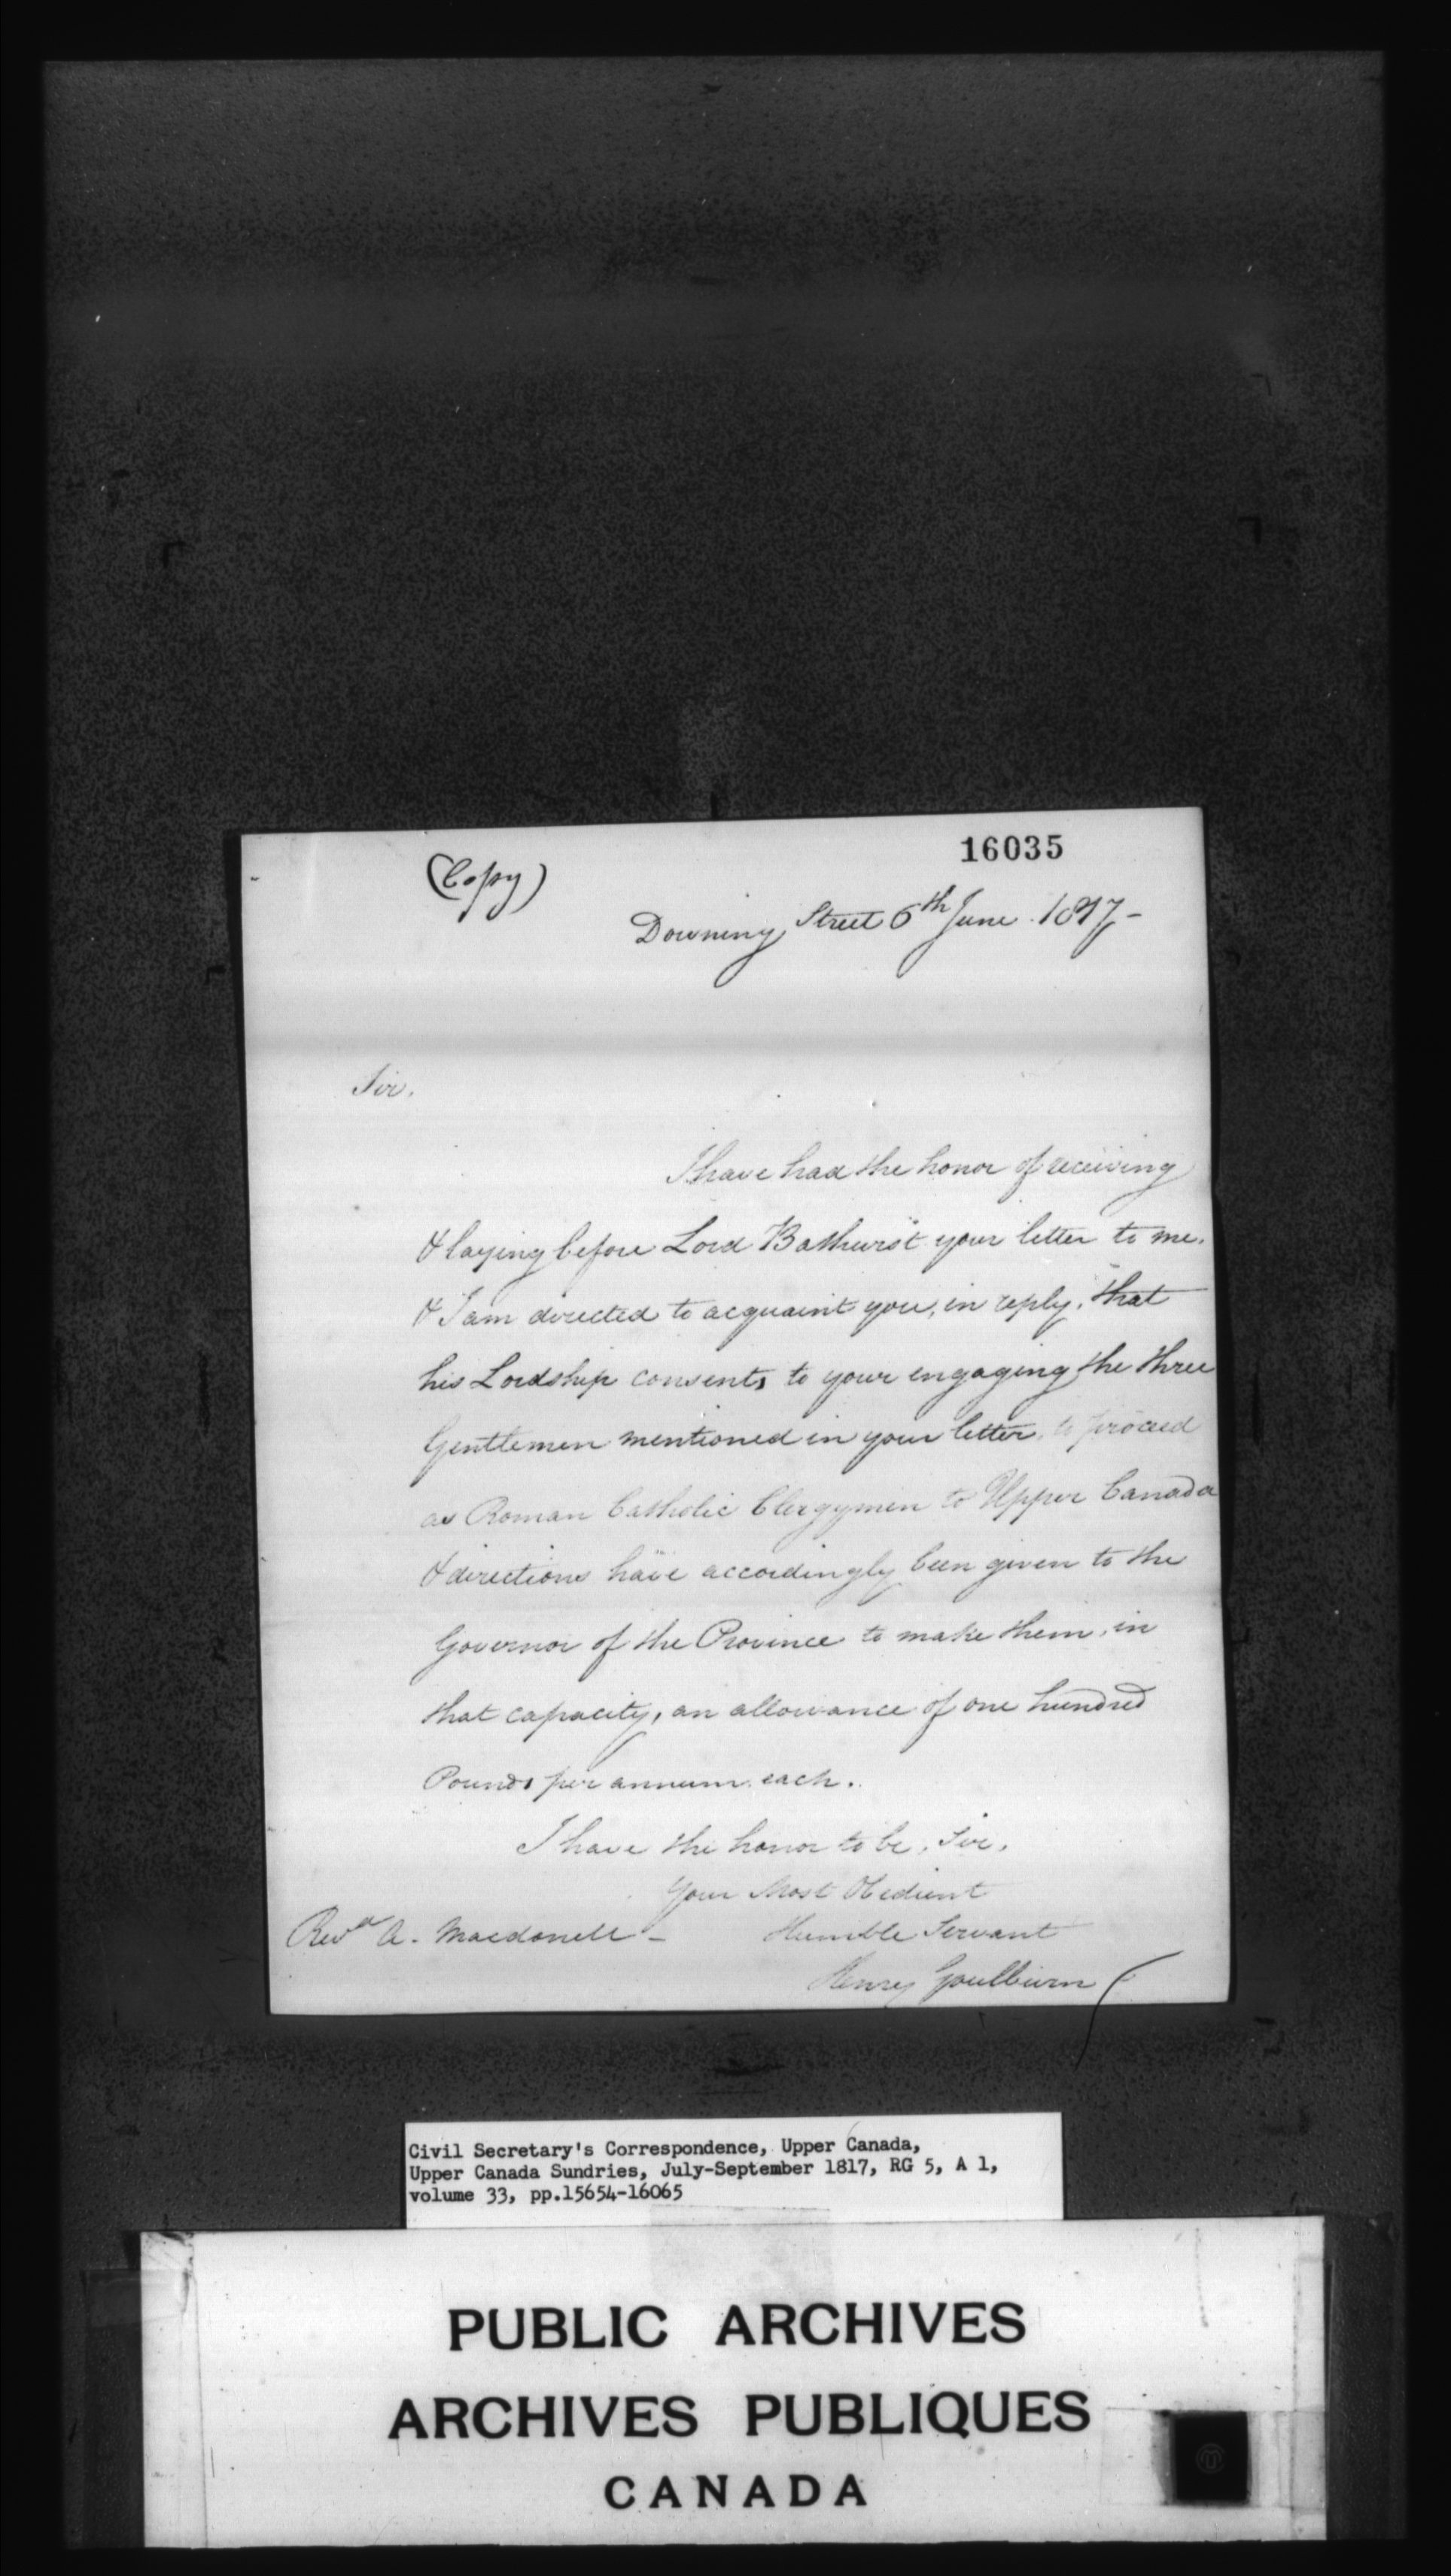 16035
(Copy)
Downing Street 6th June 1817-
Sir,
I have had the honor of receiving
& laying before Lord Bathurst your letter to me.
& I am directed to acquaint you, in reply, that
his Lordship consents to your engaging the three
Gentlemen mentioned in your letter, to proceed
as Roman Catholic Clergymen to Upper Canada
& directions have accordingly been given to the
Governor of the Province to make them, in
that capacity, an allowance of one hundred
Pounds per annum each.
I have the honor to be, Sir,
Your Most Obedient
Humble Servant
Revd A. Macdonell -
Henry Goulburn
Civil Secretary's Correspondence, Upper Canada,
Upper Canada Sundries, July-September 1817, RG 5, A 1,
volume 33, pp.15654-16065
PUBLIC ARCHIVES
ARCHIVES PUBLIQUES
CANADA